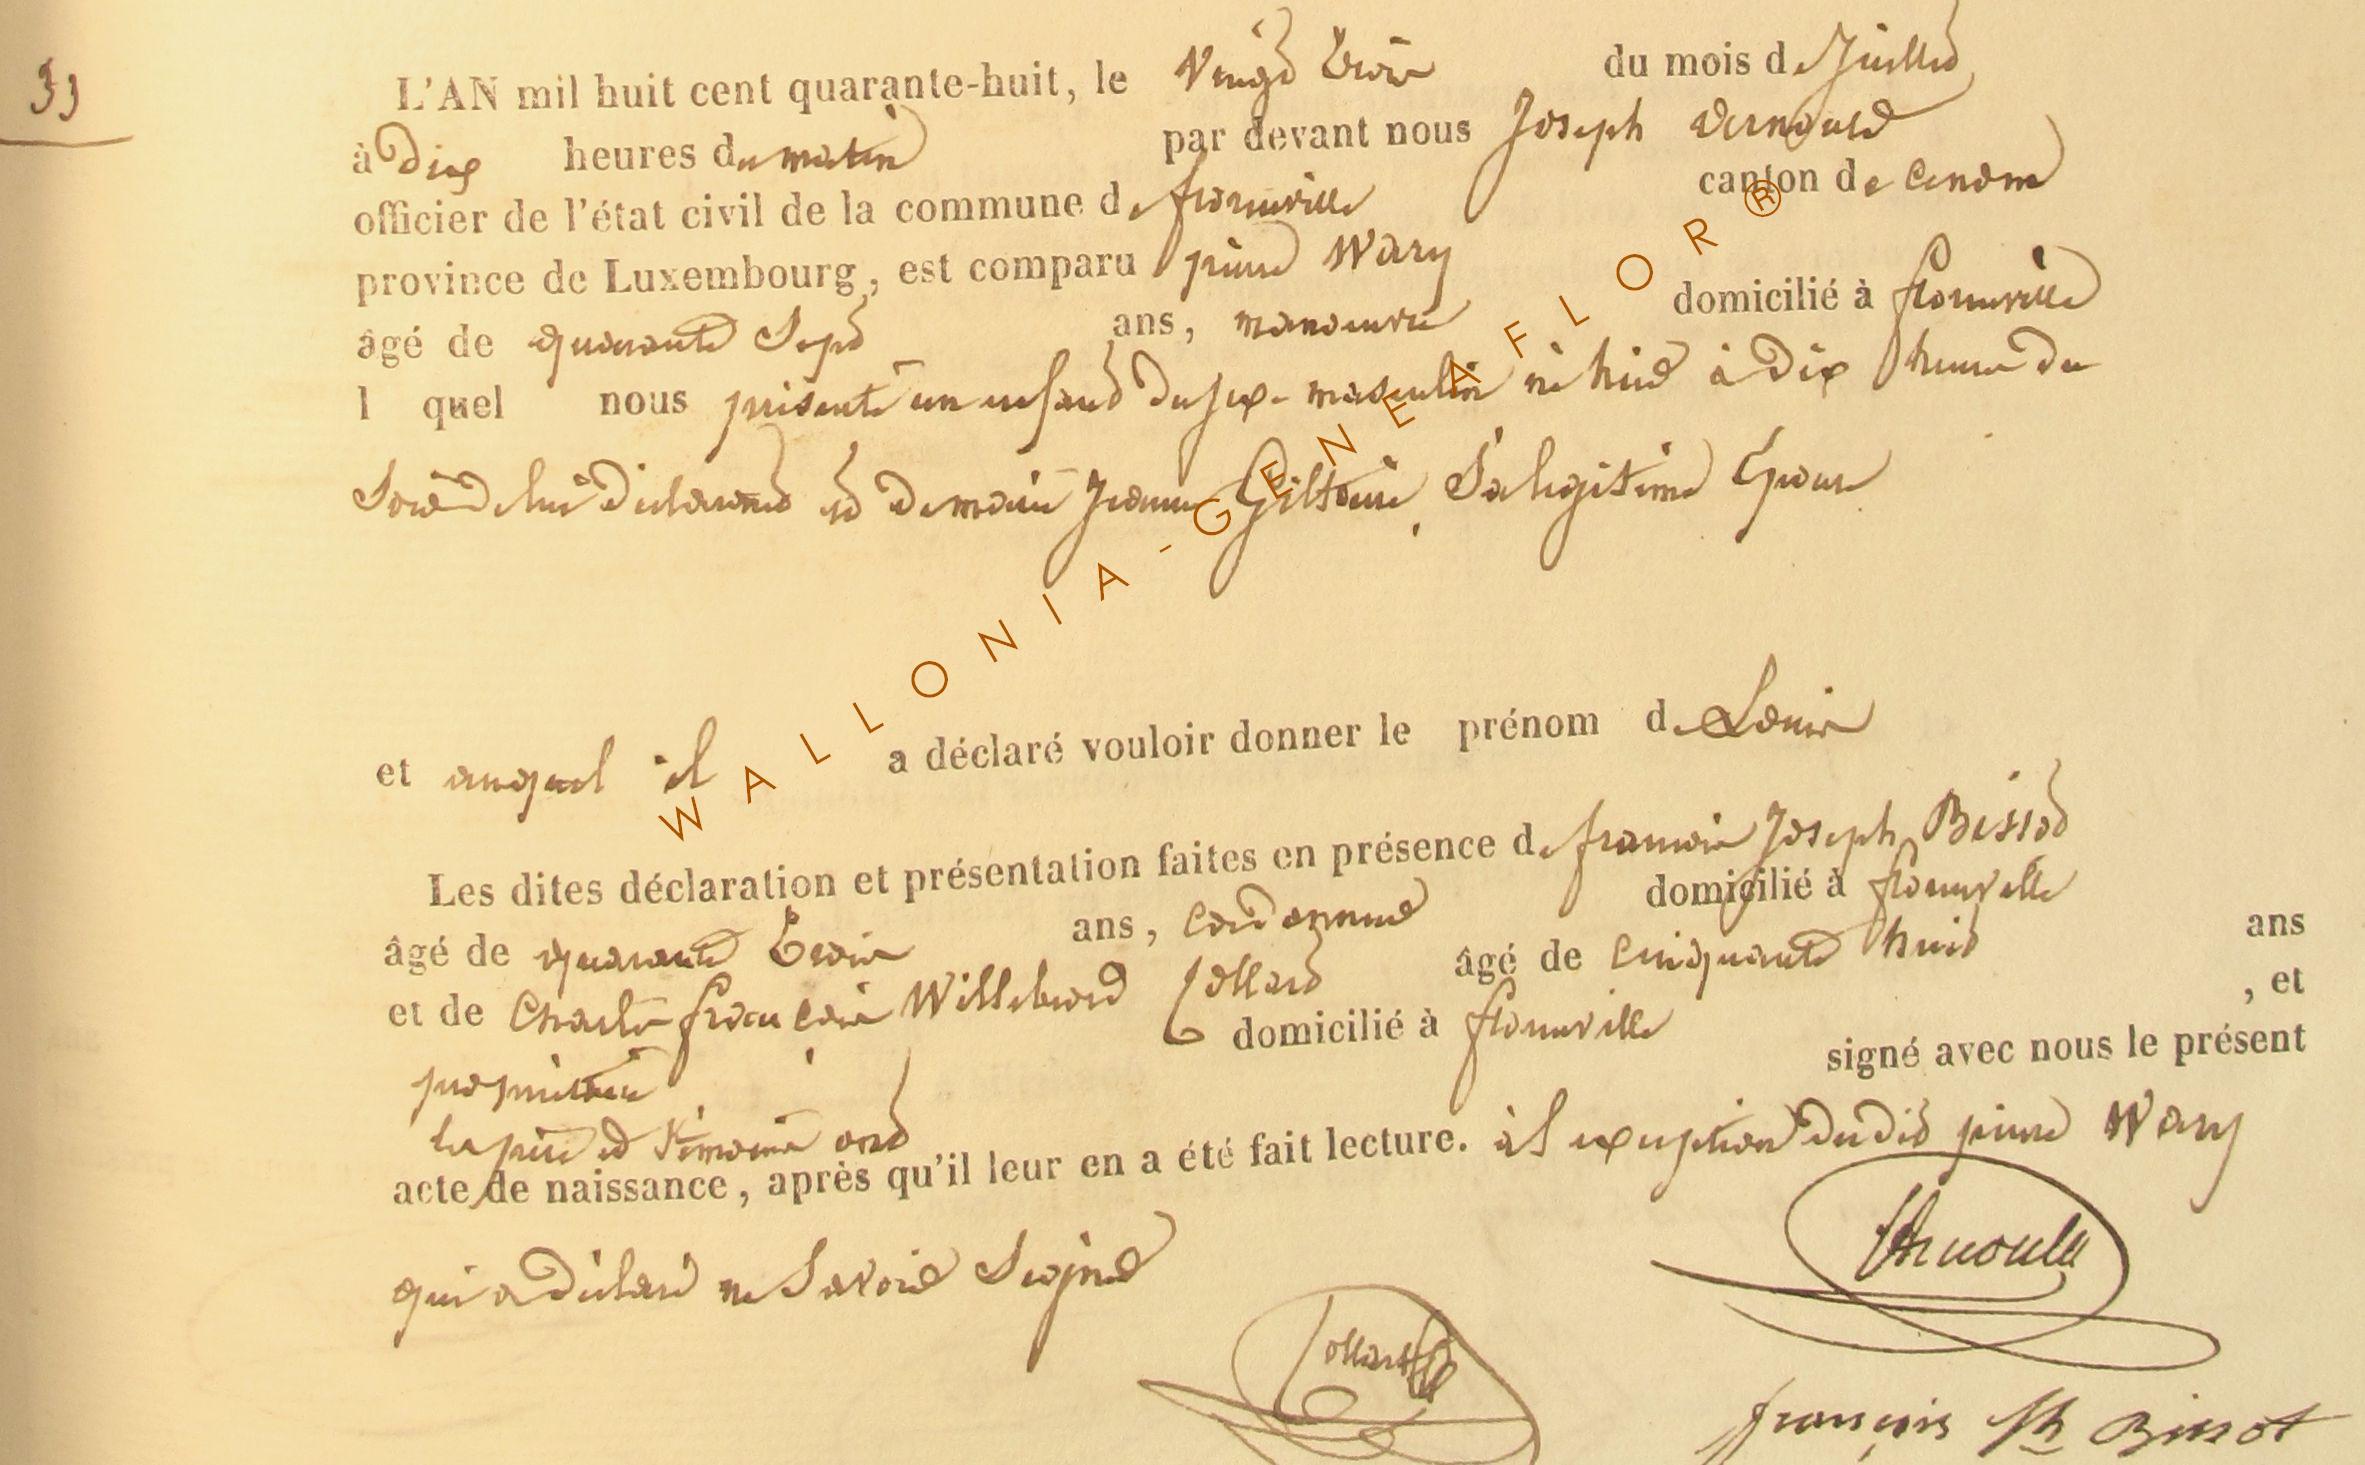 33
L'AN mil huit cent quarante-huit, le Vingt Trois du mois de Juillet
à Dix heures du matin par devant nous Joseph
officier de l'état civil de la commune de florenville canton de
province de Luxembourg, est comparu pierre Wary
âgé de quarante Sept ans, manoeuvre domicilié à florenville
l quel nous présente un enfant du sexe masculin né hier à Dix heures du
Soir de lui déclarant et de marie Jeanne Giltaire, Sa légitime Epouse
et auquel il a déclaré vouloir donner le prénom de Louis
Les dites déclaration et présentation faites en présence de francois Joseph Bissot
âgé de quarante Trois ans, cordonnier domicilié à florenville
et de Charles françois Willebrord Collard âgé de cinquante huit ans
propriétaire domicilié à florenville , et
les père et témoins ont signé avec nous le présent
acte de naissance, après qu'il leur en a été fait lecture. à l'exception dudit pierre Wary
qui a déclaré ne Savoir Signer
Collard
françois Jh Bissot
WALLONIA-GENEAFLOR®